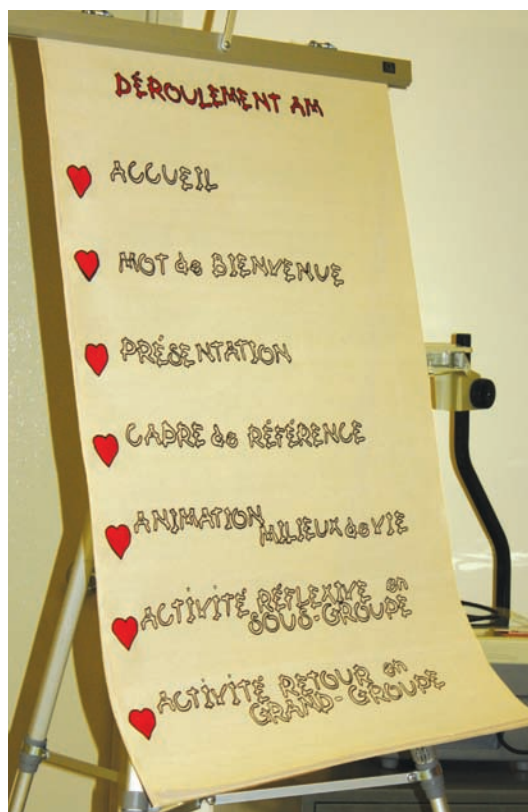 DÉROULEMENT AM
ACCUEIL
MOT de BIENVENUE
PRÉSENTATION
CADRE de RÉFÉRENCE
ANIMATION MILIEUX de VIE
ACTIVITÉ RÉFLEXIVE en
SOUS-GROUPE
ACTIVITÉ RETOUR en
GRAND-GROUPE